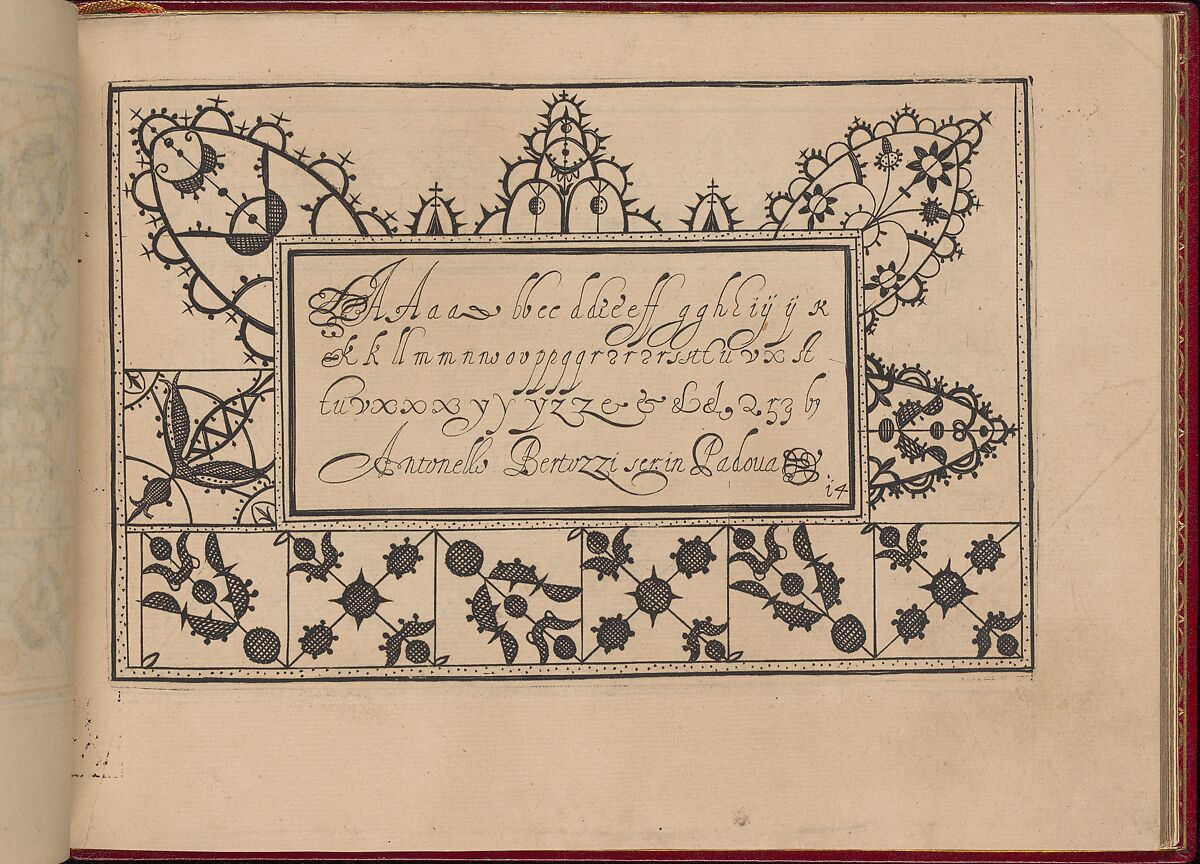 A A A a a bb cc d d e e ff g g h h i ij ij k
k k ll m m n n w o v p p q q r r r r s st t u v x st
t u v x x x x y y y z z & & & & 9 2 5 3 bz
Antonello Bertozzi scr. in Padoua
14